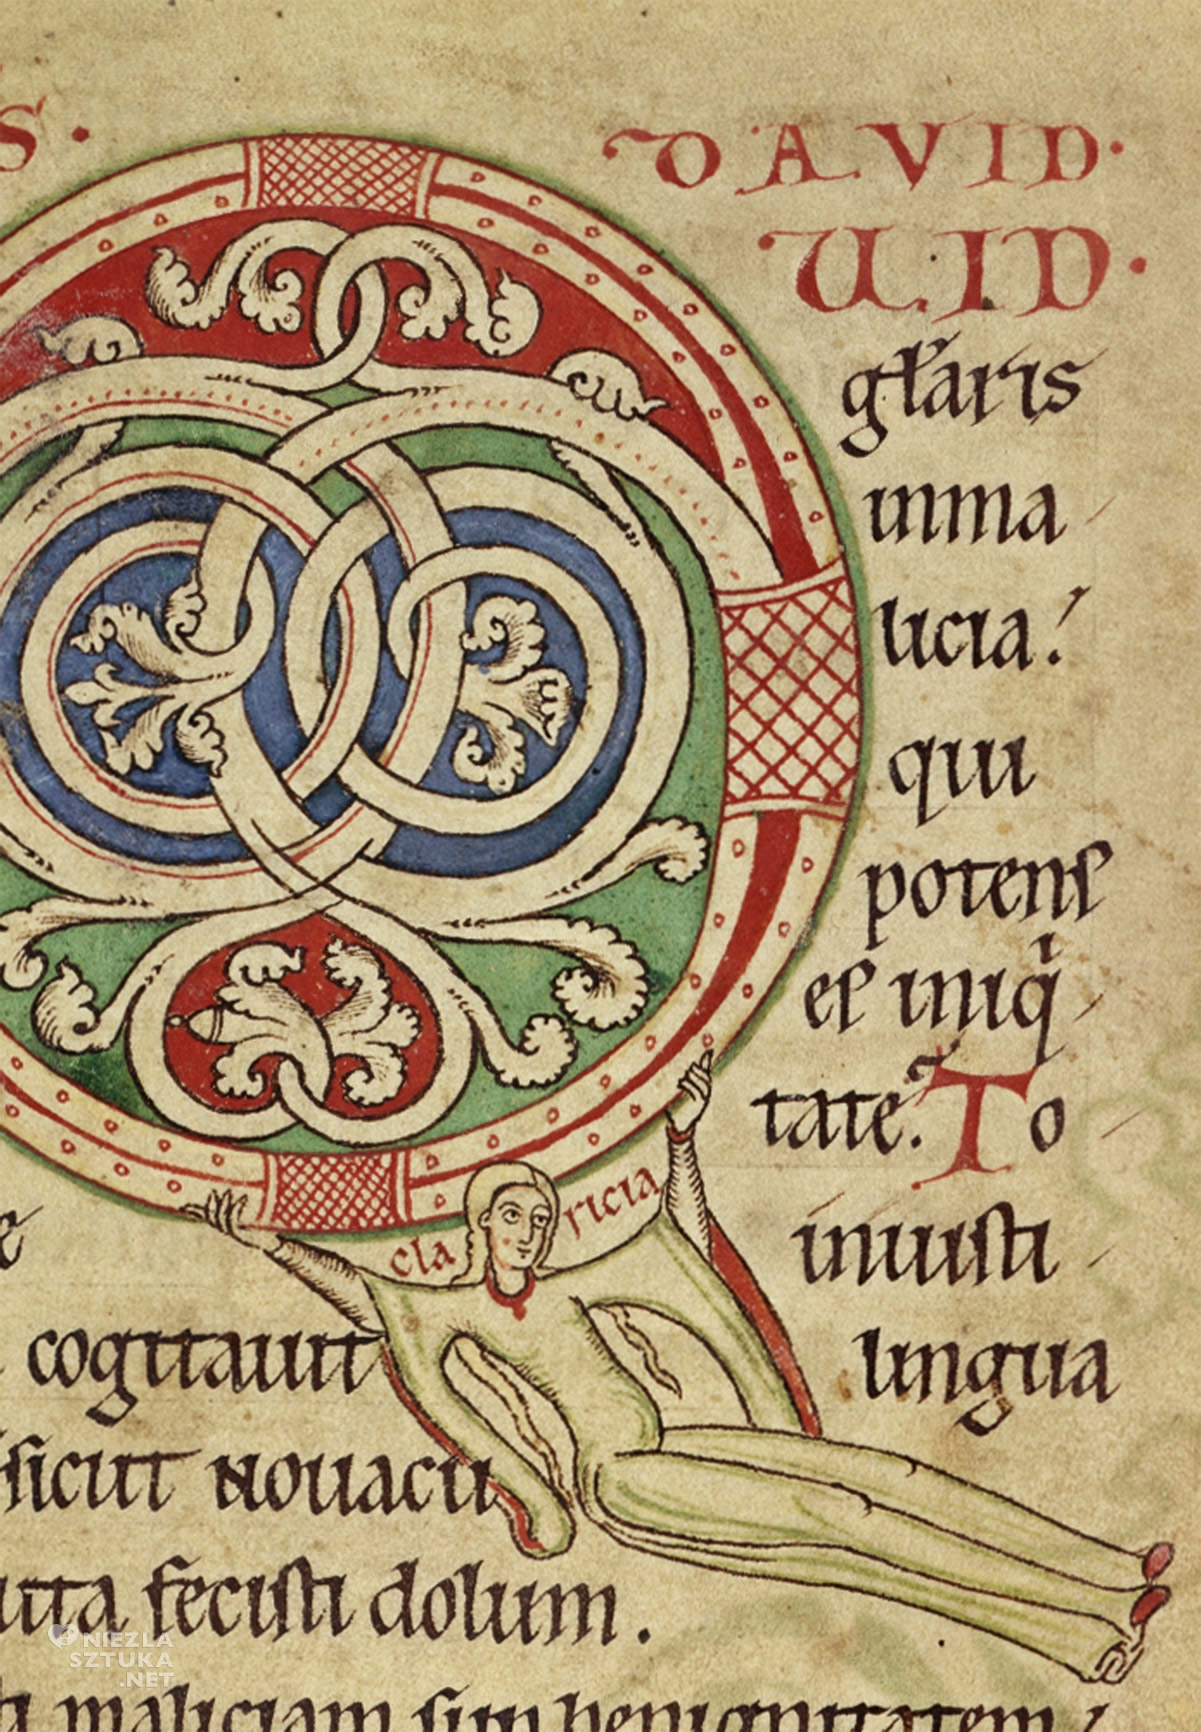 S.
DAVID.
UID.
głaris
inma
licia?
qui
potens
es iniq
tate. To
claricia
e
inuisti
cogitauit
lingua
sicut nouacu
uta fecisti dolum.
maliciam sup benignitatem
NIEZLA
SZTUKA
.NET